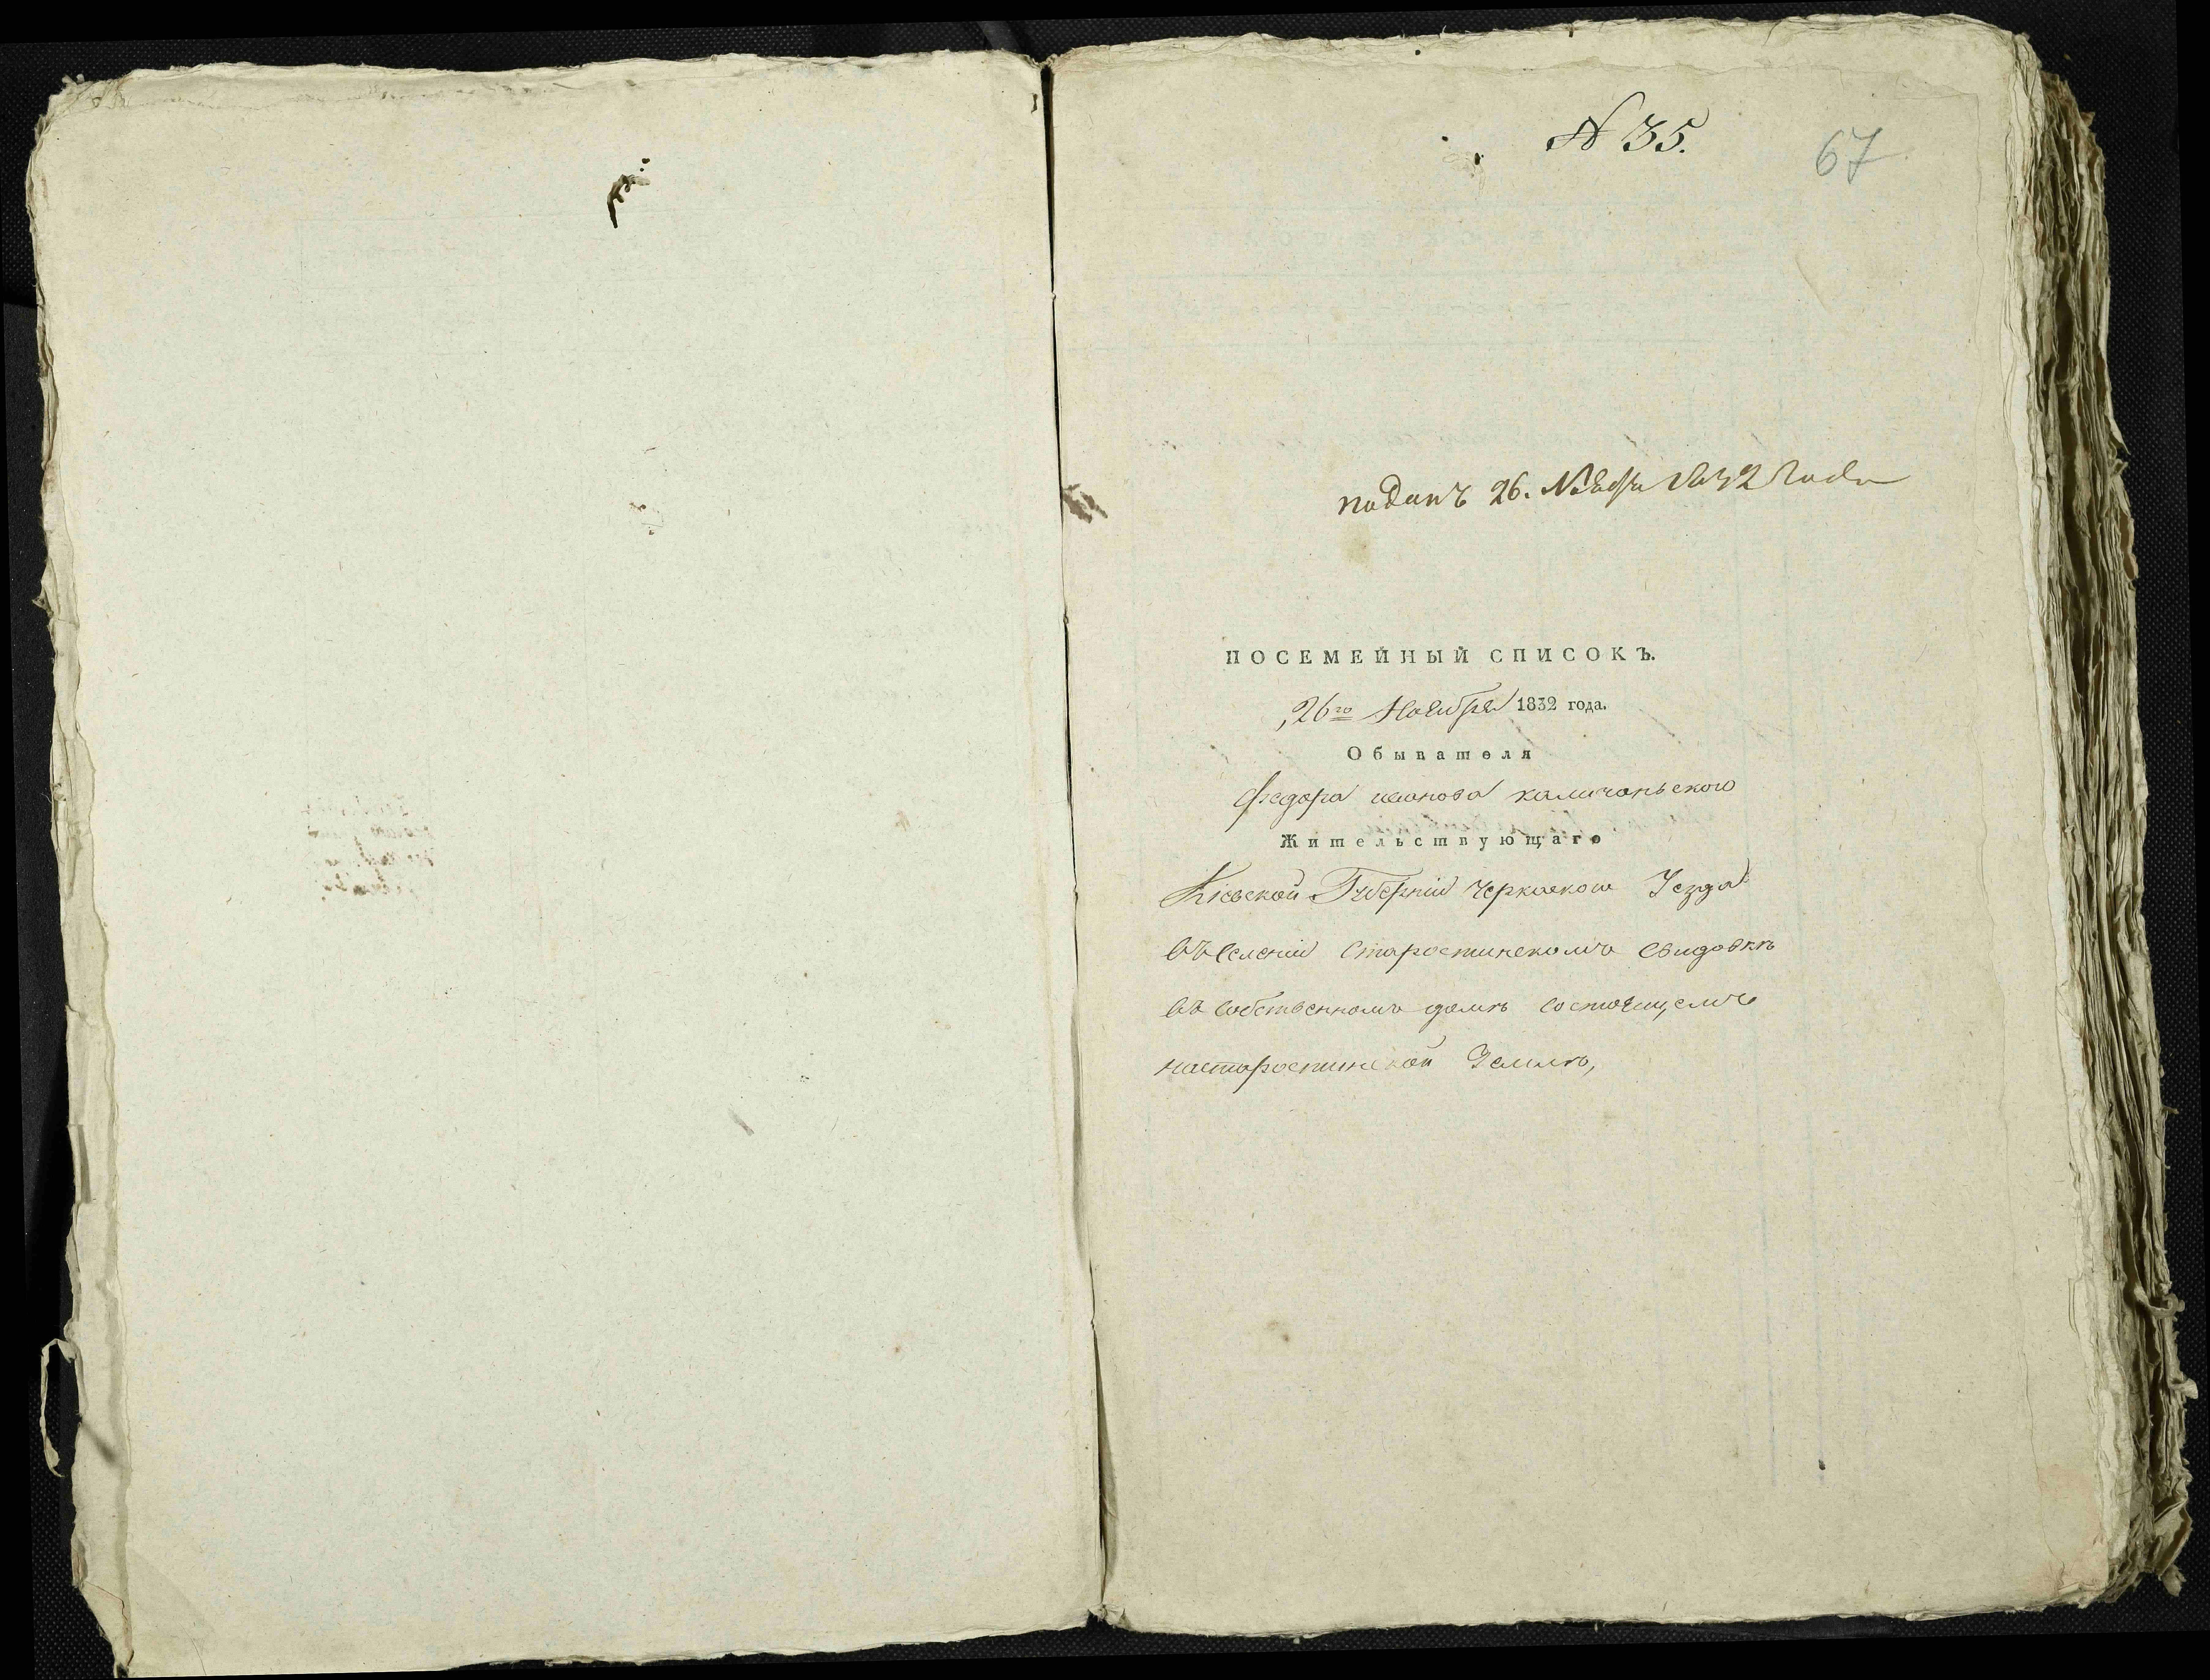 N 35.
67
поданъ 26. Ноября 1832 года
ПОСЕМЕЙНЫЙ СПИСОКЪ.
26го Ноября 1832 года.
Обывателя
Федора иванова каличаньского
Жительствующаго
Кіевской Губерніи Черкаского Уезда
въ Селеніи Старостинскомъ Свидовкѣ
въ Собственномъ домѣ Состоящемъ
настаростинской Землѣ,